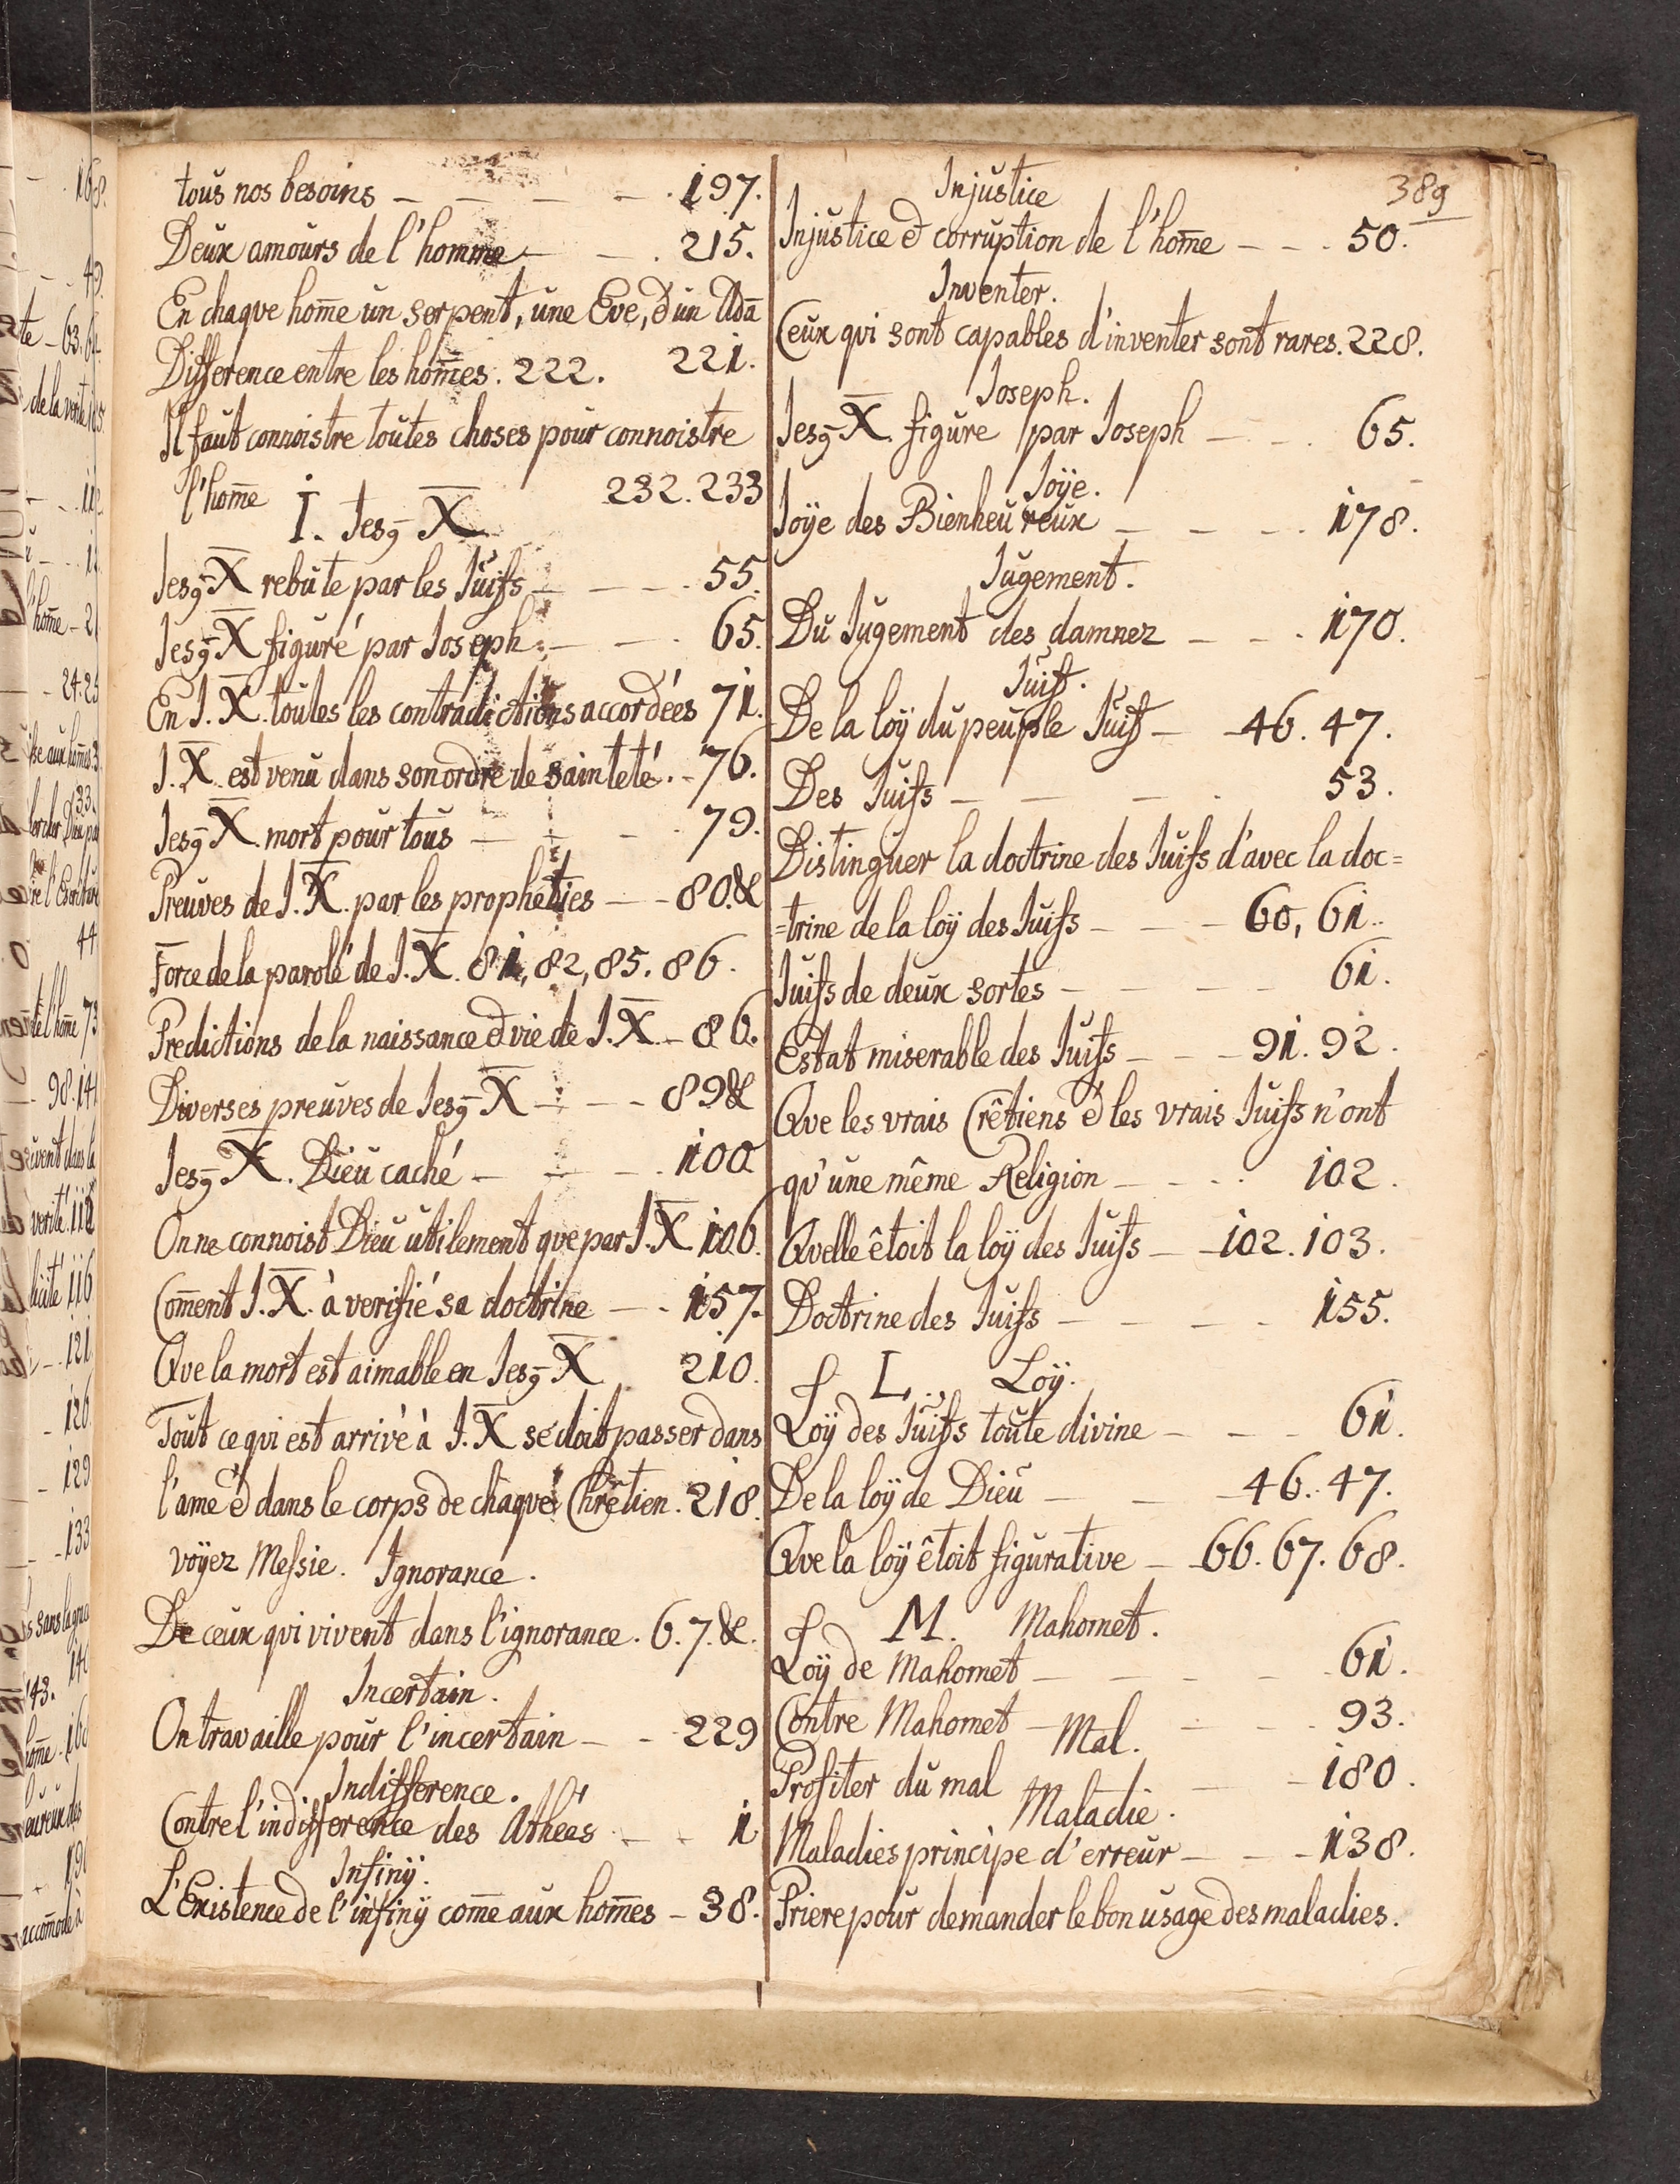 tous nos besoins - - - - . 197.
Deux amours de l'homme - - . 215.
En chaque hom̄e un serpent, une Eve, et un Adā
Difference entre les hom̄es. 222. 221.
Il faut connoistre toutes choses pour connoistre
l'hom̄e 232. 233
I. Jesꝯ X̄
Jesꝯ X̄ rebuté par les Juifs - - - 55.
Jesꝯ X̄ figuré par Joseph. - - . 65.
En J. X̄. toutes les contradictions accordées 71.
J. X̄. est venu dans son ordre de sainteté. - 76.
Jesꝯ X̄. mort pour tous - - - . 79.
Preuves de J. X̄. par les propheties - - 80.&
Force de la parole de J. X̄. 81, 82, 85. 86.
Predictions de la naissance et vie de J. X̄. - 86.
Diverses preuves de Jesꝯ X̄ - - - 89&
Jesꝯ X̄. Dieu caché - - - . 100
On ne connoist Dieu utilement que par J. X̄ 106.
Com̄ent J. X̄. à verifié sa doctrine - - . 157.
Que la mort est aimable en Jesꝯ X̄ 210.
Tout ce qui est arrivé à J. X̄ se doit passer dans
l'ame et dans le corps de chaque Chrêtien. 218.
voyez Messie. Ignorance.
De ceux qui vivent dans l'ignorance. 6. 7. &.
Incertain.
On travaille pour l'incertain - - 229
Indifference.
Contre l'indifference des Athées - - 1
Infiny.
L'Existence de l'infiny com̄e aux hom̄es - 38.
389
Injustice
Injustice et corruption de l'hom̄e - - . 50.
Inventer.
Ceux qui sont capables d'inventer sont rares. 228.
Joseph.
Jesꝯ X̄. figure par Joseph - - . 65.
Joÿe.
Joÿe des Bienheureux - - - . 178.
Jugement.
Du Jugement des damnez - - . 170.
Juif.
De la loÿ du peuple Juif - 46. 47.
Des Juifs - - - . 53.
Distinguer la doctrine des Juifs d'avec la doc=
=trine de la loÿ des Juifs - - - 60, 61.
Juifs de deux sortes - - - - 61.
Estat miserable des Juifs - - - 91. 92.
Que les vrais Crêtiens et les vrais Juifs n'ont
qu'une même Religion - - . . 102.
Quelle êtoit la loÿ des Juifs - 102. 103.
Doctrine des Juifs - - - - 155.
L. Loÿ.
Loÿ des Juifs toute divine - - - 61.
De la loÿ de Dieu - - 46. 47.
Que la loÿ êtoit figurative - 66. 67. 68.
M. Mahomet.
Loÿ de Mahomet - - - - 61.
Contre Mahomet - - - . 93.
Mal.
Profiter du mal - - 180.
Maladie.
Maladies principe d'erreur - - - 138.
Priere pour demander le bon usage des maladies.